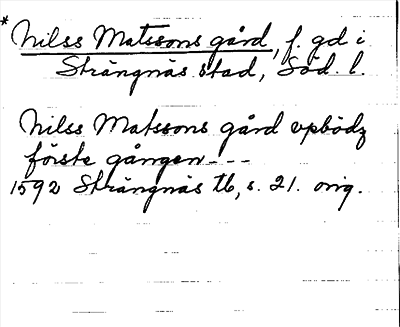 * Nilss Matssons gård, f. gd i
Strängnäs stad, Söd. l.
Nilss Matssons gård vpbödz
förste gången - - -
1592 Strängnäs tb, s. 21. orig.